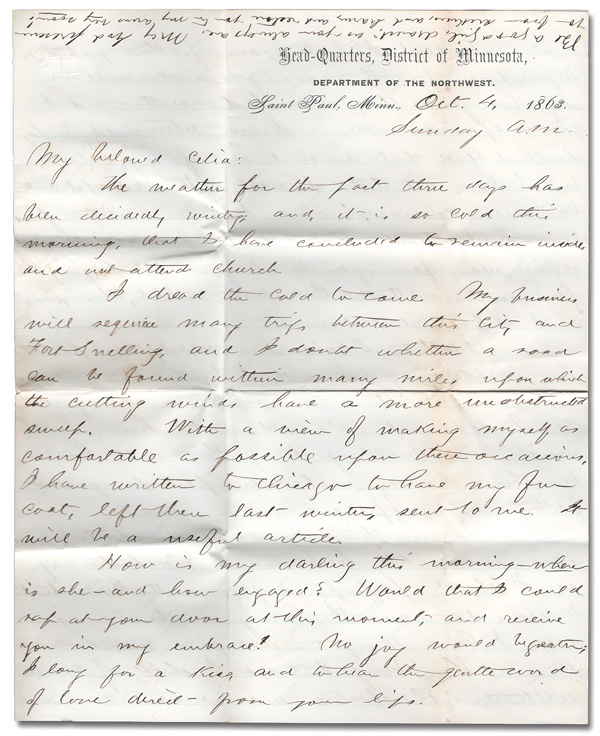 Be a good girl, dearest: as you always are. May God preserve
you from sickness, and harm, and restore you to my arms very soon!
Head-Quarters, District of Minnesota,
DEPARTMENT OF THE NORTHWEST.
Saint Paul, Minn., Oct. 4, 1863.
Sunday A.M.
My beloved Celia:
The weather for the past three days has
been decidedly wintry, and, it is so cold this
morning, that I have concluded to remain inside,
and not attend church.
I dread the cold to come. My business
will require many trips between this City and
Fort Snelling, and I doubt whether a road
can be found within many miles upon which
the cutting winds have a more unobstructed
sweep. With a view of making myself as
comfortable as possible upon these occasions,
I have written to Chicago to have my fur
coat, left there last winter, sent to me. It
will be a useful article.
How is my darling this morning - where
is she - and how engaged? Would that I could
rap at your door at this moment, and receive
you in my embrace! No joy would be greater;
I long for a kiss, and to hear the gentle word
of love direct - from your lips.